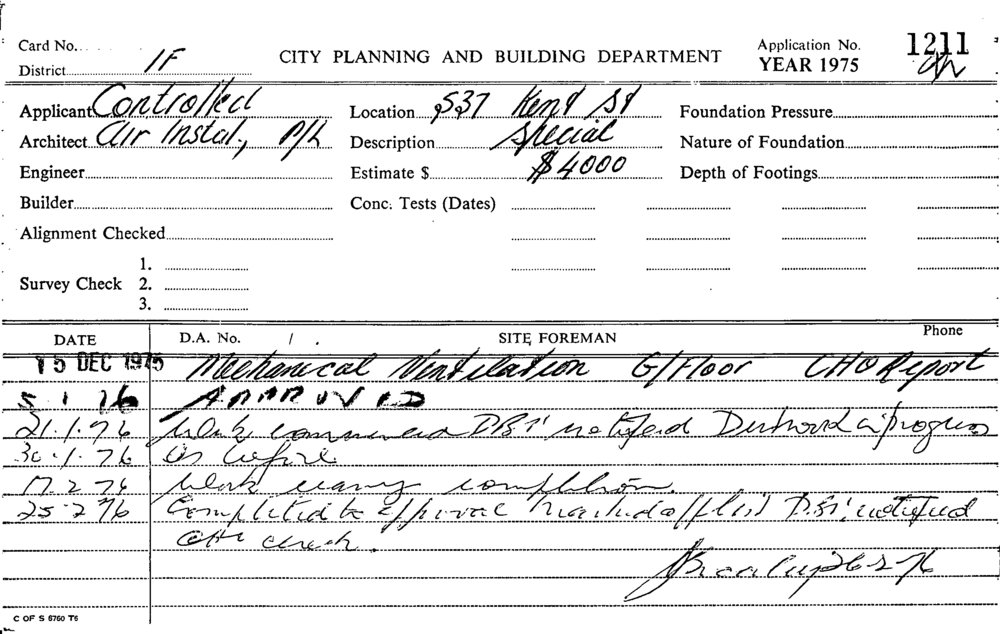 Card No.
CITY PLANNING AND BUILDING DEPARTMENT
Application No. 1211
District 1F
YEAR 1975
Applicant Controlled
Location 537 Kent St
Foundation Pressure
Architect Air Instal., P/L
Description Special
Nature of Foundation
Engineer
Estimate $ $4000
Depth of Footings
Builder
Conc. Tests (Dates)
Alignment Checked
1.
Survey Check 2.
3.
DATE D.A. No. / . SITE FOREMAN Phone
15 DEC 1975 Mechanical Ventilation G/Floor CHO Report
5 1 76 APPROVED
21.1.76 Work commenced DBS notified in progress
30.1.76 as before
17.2.76 Work nearing completion.
25 2 76 Completed to approval DBS notified
CHO check.
26-2-76
C OF S 6760 T6